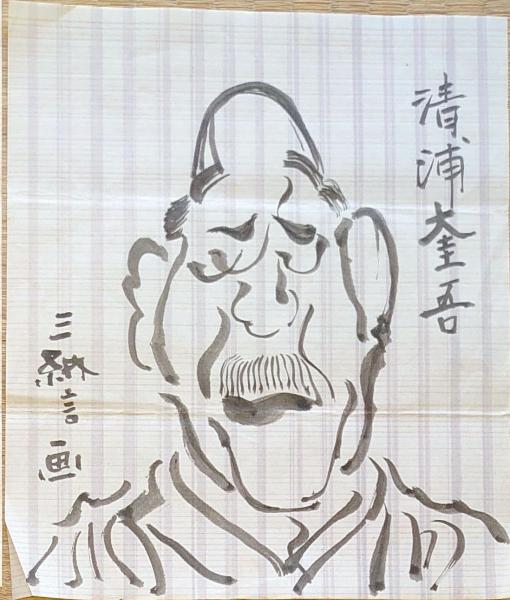 清浦奎吾
三 言画